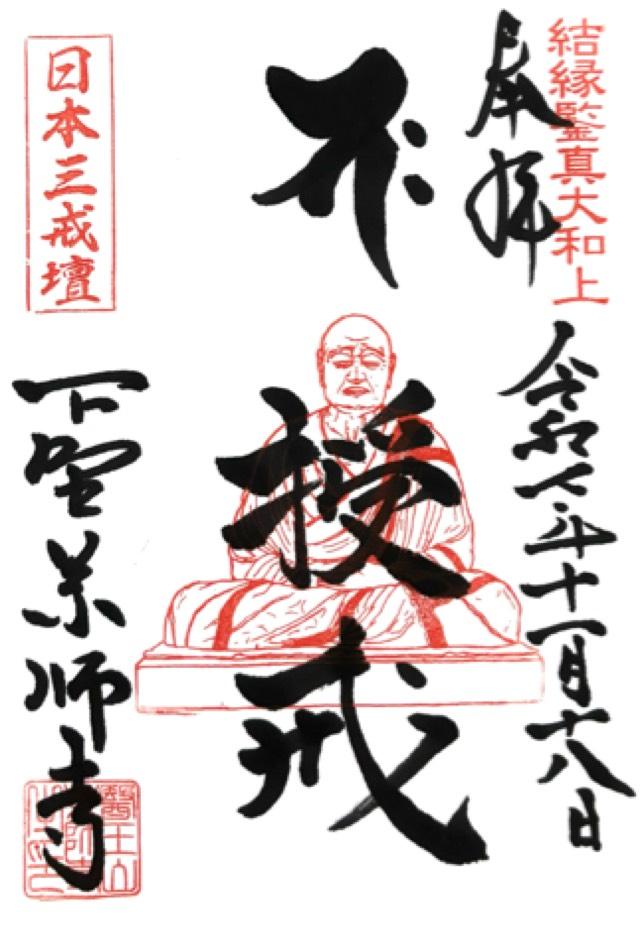 結縁鑒真大和上
奉拝
令和七年十一月十八日
授戒
日本三戒壇
下野薬師寺
醫王山